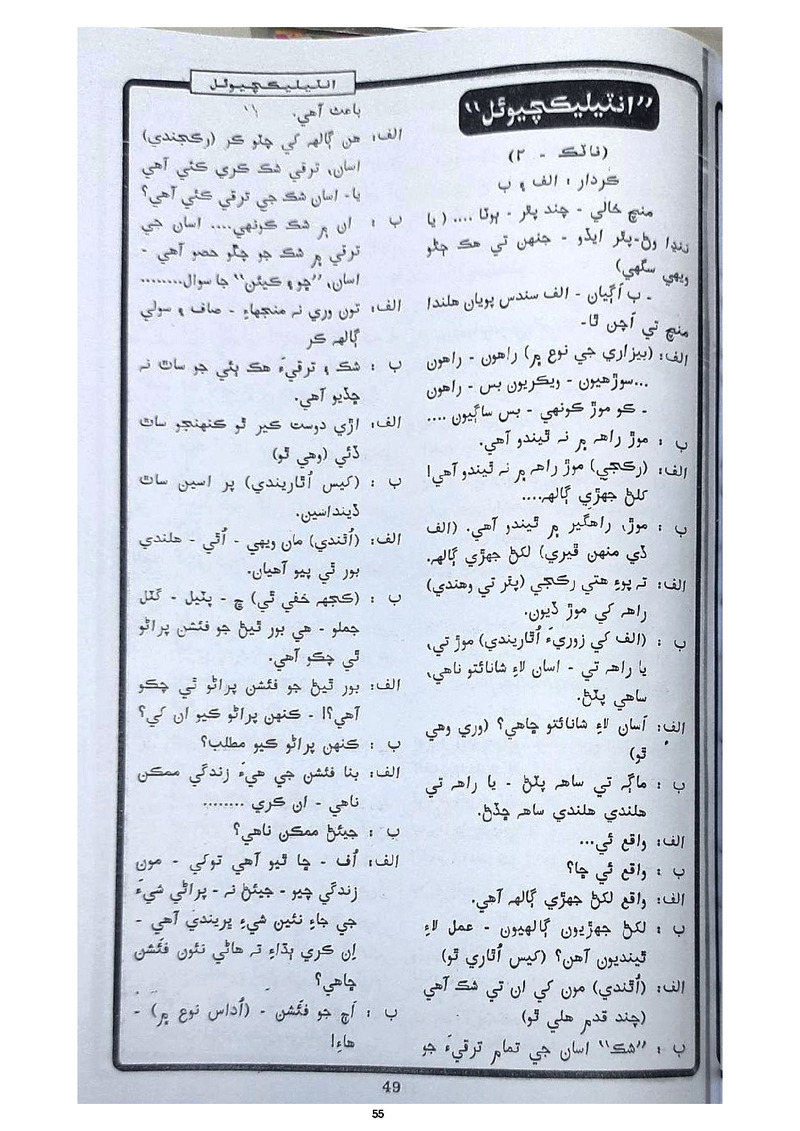 انٽيليڪچيوئل
”انٽيليڪچيوئل“
(ناٽڪ - ۲)
ڪردار : الف ۽ ب
منچ خالي - چند پٿر - ٻوٽا .... ( يا
ننڍا وڻ-پٿر ايڏو - جنهن تي هڪ ڄڻو
ويهي سگهي)
- ب اڳيان - الف سندس پويان هلندا
منچ تي اَچن ٿا-
الف: (بيزاري جي نوع ۾) راهون - راهون
...سوڙهيون - ويڪريون بس - راهون
- ڪو موڙ ڪونهي - بس ساڳيون ....
ب : موڙ راهہ ۾ نہ ٿيندو آهي.
الف: (رڪجي) موڙ راهہ ۾ نہ ٿيندو آهي!
کلڻ جهڙي ڳالهہ....
ب : موڙ، راهگير ۾ ٿيندو آهي. (الف
ڏي منهن ڦيري) لکڻ جهڙي ڳالهہ.
الف: تہ پوءِ هتي رڪجي (پٿر تي وهندي)
راهہ کي موڙ ڏيون.
ب : (الف کي زوريءَ اُٿاريندي) موڙ تي،
يا راهہ تي - اسان لاءِ شانائتو ناهي،
ساهي پٽڻ.
الف: اَسان لاءِ شانائتو ڇاهي؟ (وري وهي
ٿو)
ب : ماڳہ تي ساهہ پٽڻ - يا راهہ تي
هلندي هلندي ساهہ ڇڏڻ.
الف: واقع ئي...
ب : واقع ئي ڇا؟
الف: واقع لکڻ جهڙي ڳالهہ آهي.
ب : لکڻ جهڙيون ڳالهيون - عمل لاءِ
ٿينديون آهن؟ (کيس اُٿاري ٿو)
الف: (اُٿندي) مون کي ان تي شڪ آهي
(چند قدم هلي ٿو)
ب : ”شڪ“ اسان جي تمام ترقيءَ جو
باعث آهي.
الف: هن ڳالهہ کي چٽو ڪر (رڪجندي)
اسان، ترقي شڪ ڪري ڪئي آهي
يا- اسان شڪ جي ترقي ڪئي آهي؟
ب : ان ۾ شڪ ڪونهي.... اسان جي
ترقي ۾ شڪ جو چڱو حصو آهي -
اسان، ”ڇو ۽ ڪيئن“ جا سوال........
الف: تون وري نہ منجهاءِ - صاف ۽ سولي
ڳالهہ ڪر
ب : شڪ ۽ ترقيءَ هڪ ٻئي جو ساٿ نہ
ڇڏيو آهي.
الف: اڙي دوست ڪير ٿو ڪنهنجو ساٿ
ڏئي (وهي ٿو)
ب : (کيس اُٿاريندي) پر اسين ساٿ
ڏينداسين.
الف: (اُٿندي) مان ويهي - اُٿي - هلندي
بور ٿي پيو آهيان.
ب : (ڪجهہ خفي ٿي) ڇ - پٽيل - گٽل
جملو - هي بور ٿيڻ جو فئشن پراڻو
ٿي چڪو آهي.
الف: بور ٿيڻ جو فئشن پراڻو ٿي چڪو
آهي؟! - ڪنهن پراڻو ڪيو ان کي؟
ب : ڪنهن پراڻو ڪيو مطلب؟
الف: بنا فئشن جي هيءَ زندگي ممڪن
ناهي - ان ڪري ........
ب : جيئڻ ممڪن ناهي؟
الف: اُف - ڇا ٿيو آهي توکي - مون
زندگي چيو - جيئڻ نہ - پراڻي شيءَ
جي جاءِ نئين شيءِ ڀريندي آهي -
اِن ڪري ٻڌاءِ تہ هاڻي نئون فئشن
ڇاهي؟
ب : اَڄ جو فئشن - (اُداس نوع ۾) -
هاءِ!
49
55